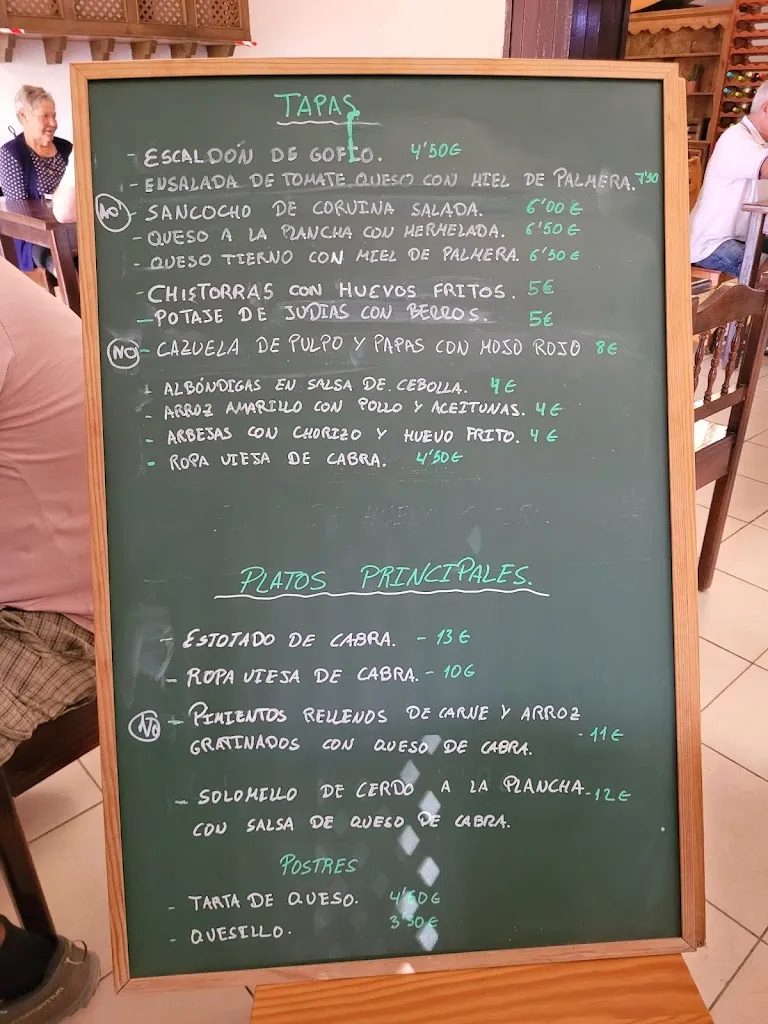 TAPAS
- ESCALDÓN DE GOFIO. 4'50€
- ENSALADA DE TOMATE QUESO CON MIEL DE PALMERA. 7'50
NO - SANCOCHO DE CORVINA SALADA. 6'00€
- QUESO A LA PLANCHA CON MERMELADA. 6'50€
- QUESO TIERNO CON MIEL DE PALMERA. 6'50€
- CHISTORRAS CON HUEVOS FRITOS. 5€
- POTAJE DE JUDIAS CON BERROS. 5€
NO - CAZUELA DE PULPO Y PAPAS CON MOJO ROJO 8€
- ALBÓNDIGAS EN SALSA DE CEBOLLA. 4€
- ARROZ AMARILLO CON POLLO Y ACEITUNAS. 4€
- ARBEJAS CON CHORIZO Y HUEVO FRITO. 4€
- ROPA VIEJA DE CABRA. 4'50€
PLATOS PRINCIPALES.
- ESTOFADO DE CABRA. - 13€
- ROPA VIEJA DE CABRA. - 10€
NO - PIMIENTOS RELLENOS DE CARNE Y ARROZ
GRATINADOS CON QUESO DE CABRA. - 11€
- SOLOMILLO DE CERDO A LA PLANCHA - 12€
CON SALSA DE QUESO DE CABRA.
POSTRES
- TARTA DE QUESO.
- QUESILLO. 3'50€